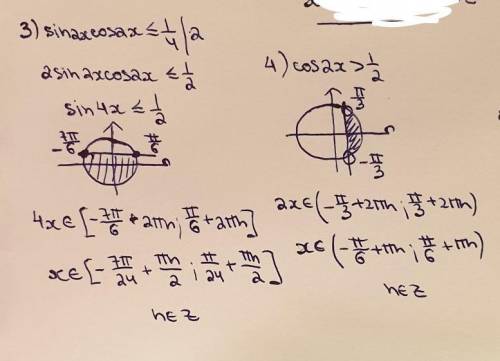 3) sin2xcos2x ≤ 1/4 | 2
2sin2xcos2x ≤ 1/2
sin4x ≤ 1/2
-7π/6 π/6
4x∈[-7π/6 + 2πn; π/6 + 2πn]
x∈[-7π/24 + πn/2; π/24 + πn/2]
n∈Z
4) cos2x > 1/2
π/3
-π/3
2x∈(-π/3 + 2πn; π/3 + 2πn)
x∈(-π/6 + πn; π/6 + πn)
n∈Z